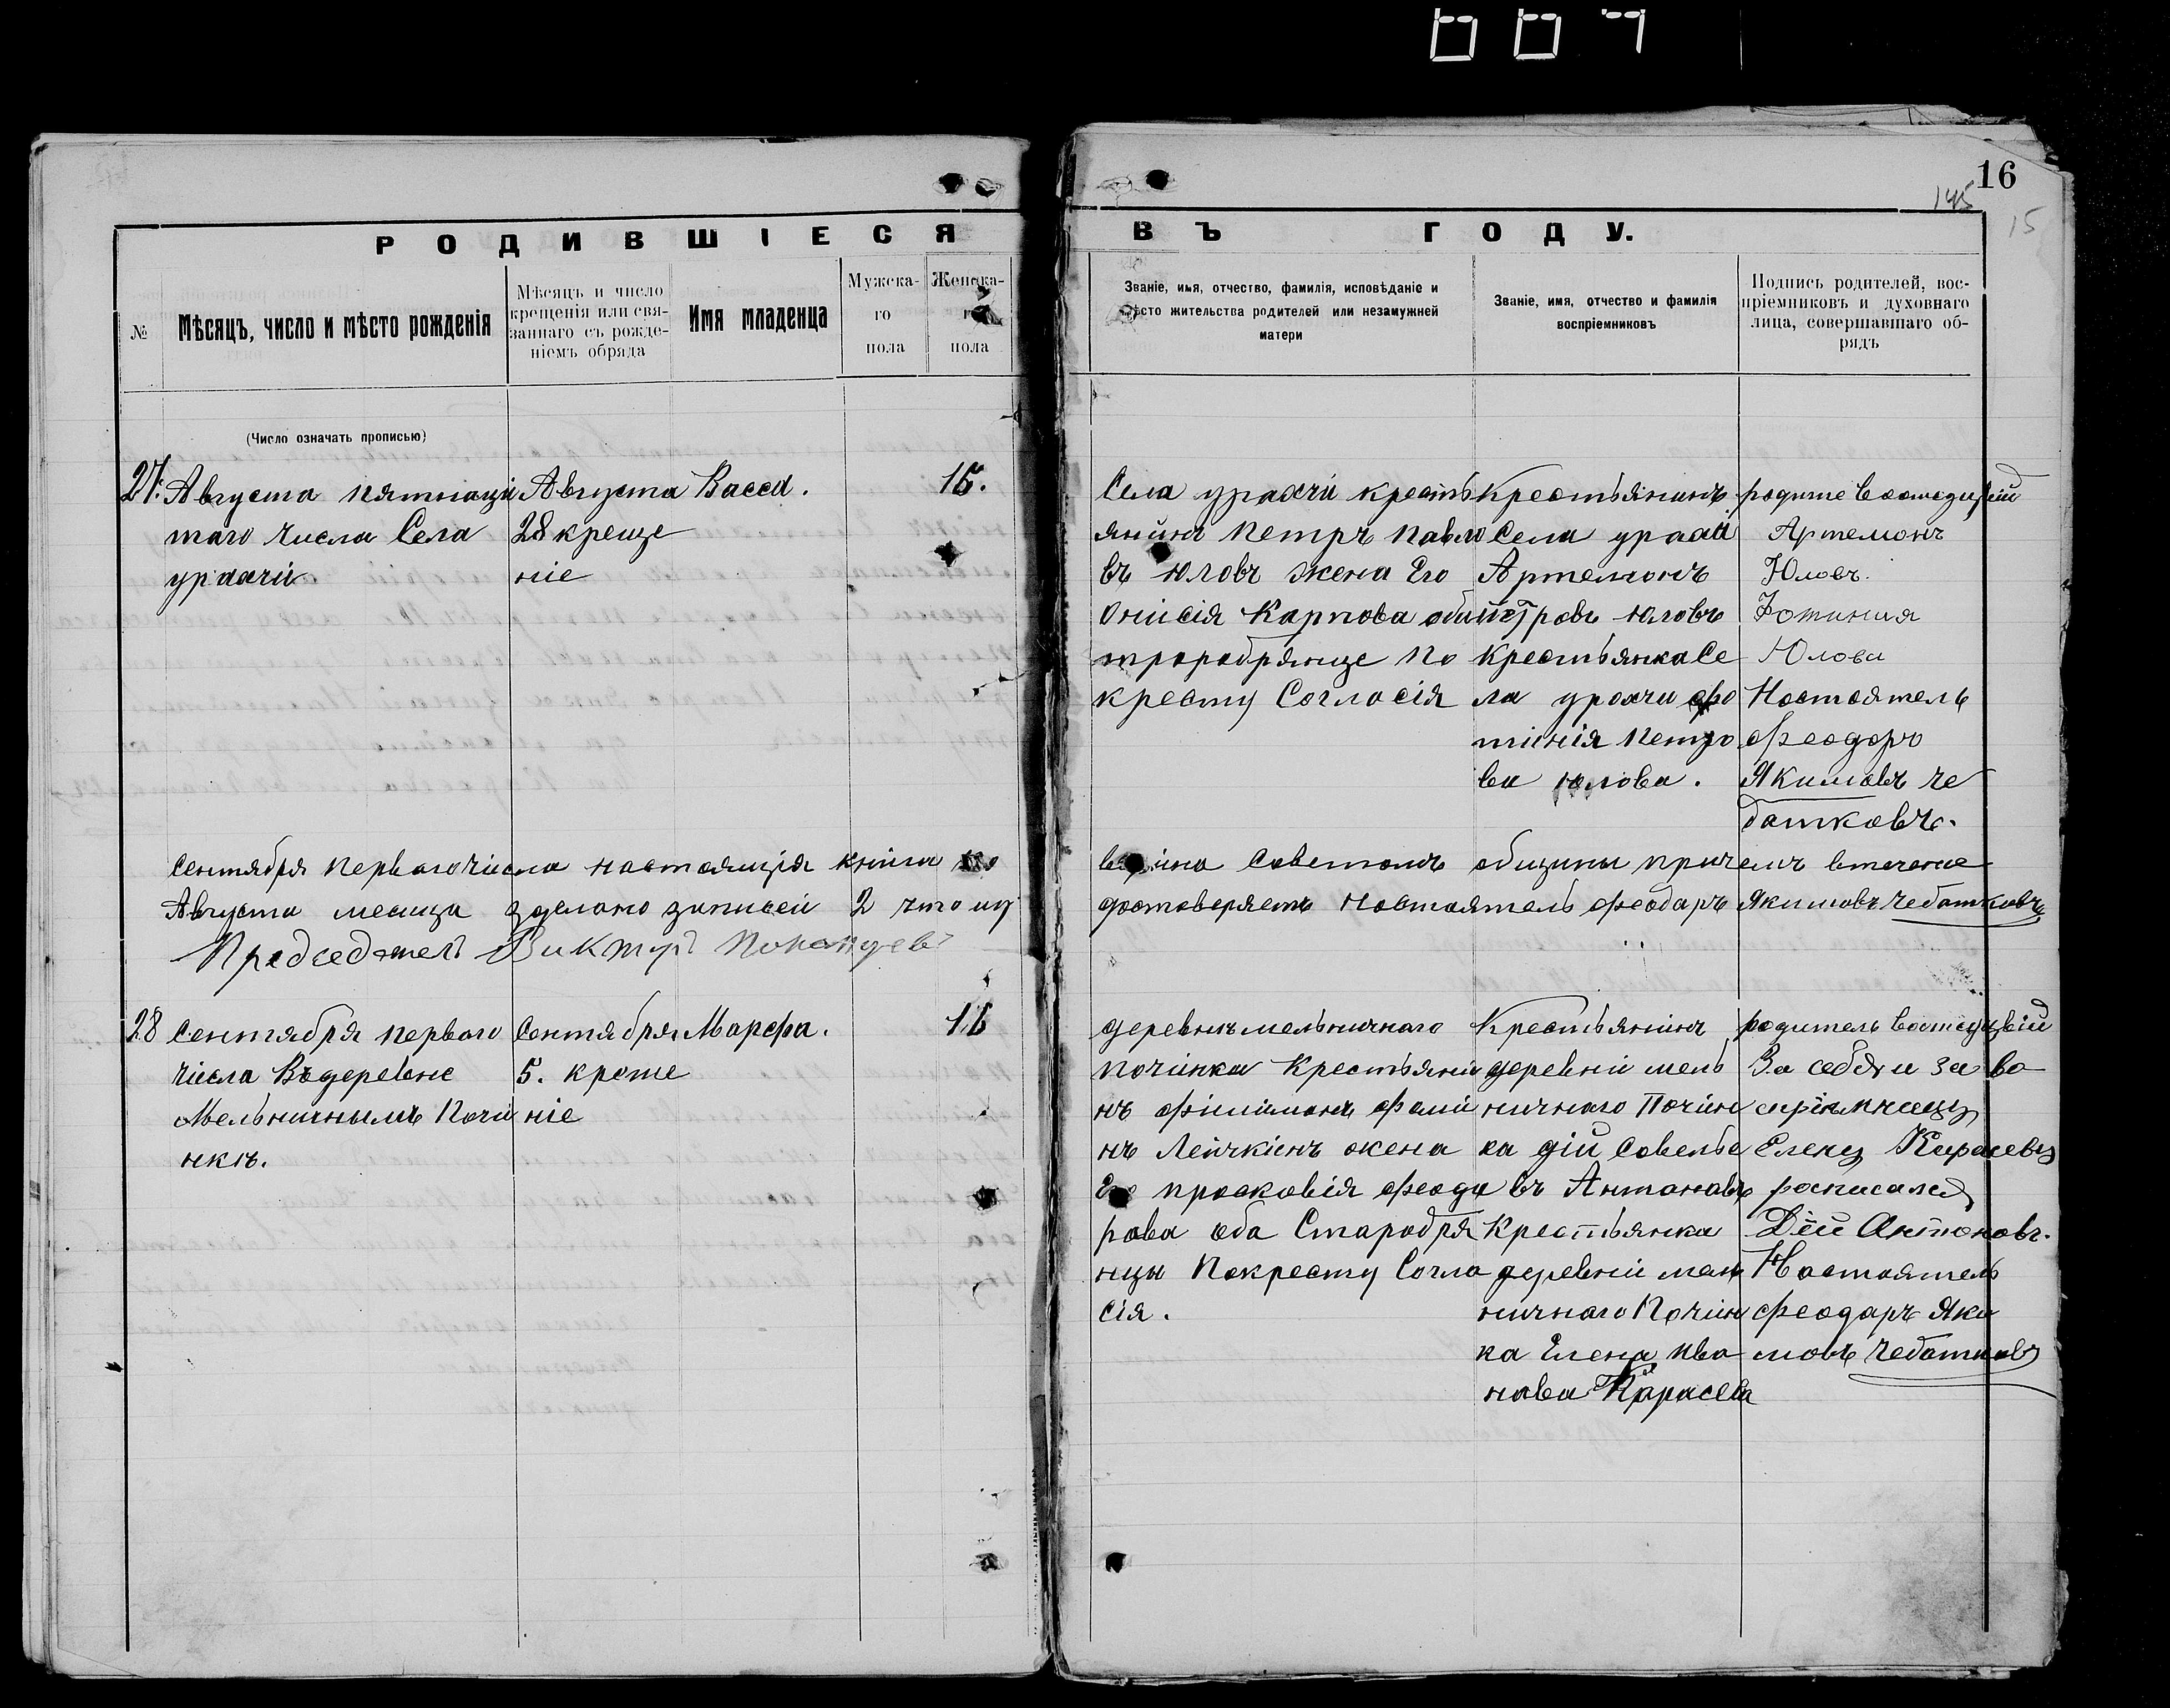 007
16
145
15
РОДИВШІЕСЯ
ВЪ ГОДУ.
№
Мѣсяцъ, число и мѣсто рожденія
Мѣсяцъ и число
крещенія или свя-
заннаго съ рожде-
ніемъ обряда
Имя младенца
Мужска-
го
пола
Женска-
пола
Званіе, имя, отчество, фамилія, исповѣданіе и
мѣсто жительства родителей или незамужней
матери
Званіе, имя, отчество и фамилія
воспріемниковъ
Подпись родителей, вос-
пріемниковъ и духовнаго
лица, совершавшаго об-
рядъ
(Число означать прописью)
27.
Августа пятнаци
таго числа Села
урахчи
Августа
28 креще
ніе
Васса.
15.
Села урахчи кресть
янинъ Петръ Павло
въ Юловъ жена Его
Онисія Карпова
кресту Согласія
Крестьянинъ
Села
Артемонъ
Петровъ Юловъ
Крестьянка Се
ла урахчи Фо
тинія Петро
ва Юлова.
Артемонъ
Юловъ.
Фотиния
Юлова
Настоятель
Феодоръ
Якимовъ Че
батковъ.
Сентября перваго числа настоящія книга
Августа месица зделано записей 2 что уд
Председатель Викторъ
Советомъ общины причемъ втечение
достоверяетъ Настоятель Феодаръ Якимовъ Чебатковъ
28
Сентября перваго
числа Въдеревне
Мельничнымъ Почи
нкѣ.
Сентября
5. кроше
ніе
Марфа.
16
деревнѣ мельничнаго
починка Крестьяни
нъ Филимонъ
нъ Лейчкинъ жена
Его просковія Феодо
рова оба Старобря
нцы Покресту Согла
сія.
Крестьянинъ
деревни мель
ничнаго Почин
ка дій Савелье
въ Антоновъ
Крестьянка
деревни мель
ничнаго Почин
ка Елена Ива
нова Карасева
родитель
За себя и за во
спріемницу
Елену Карасеву
росписался
Дѣй Антоновъ.
Настоятель
Феодаръ Яки
мовъ Чебатковъ